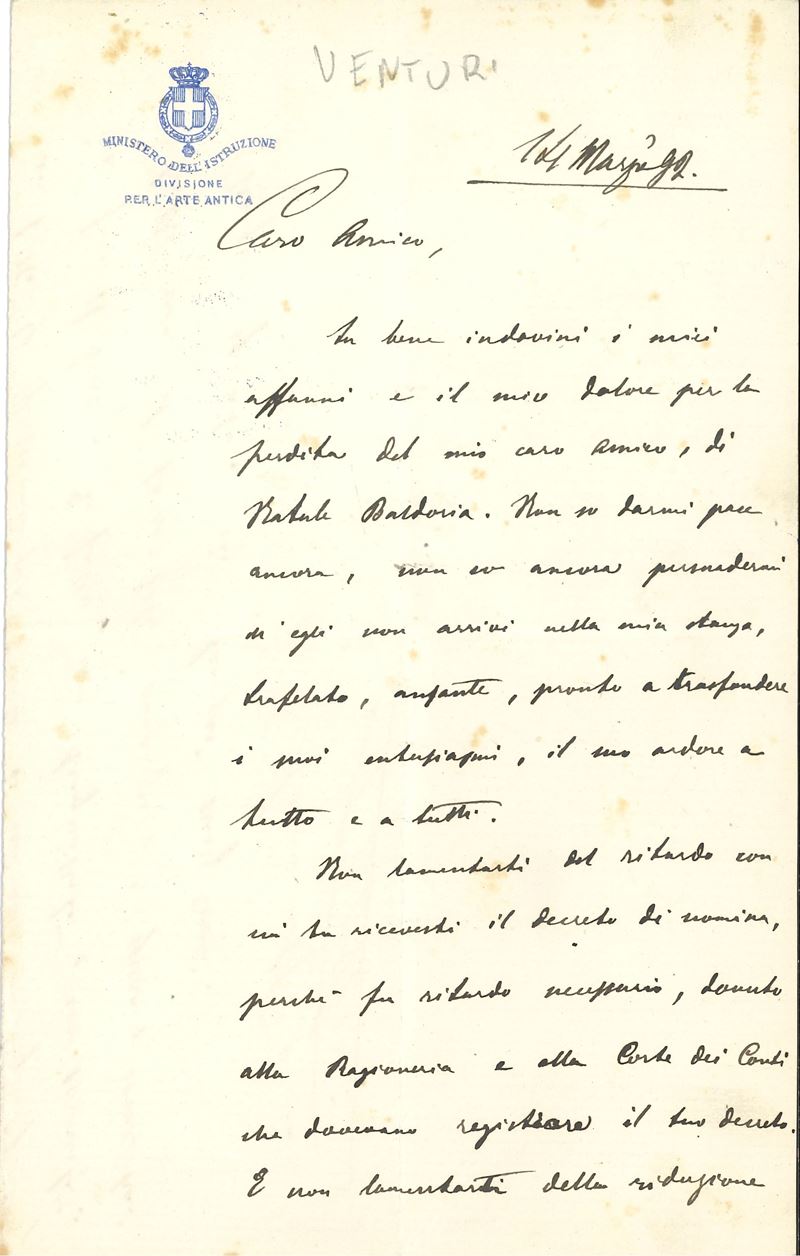 VENTURI
MINISTERO DELL'ISTRUZIONE
DIVISIONE
PER L'ARTE ANTICA
14 Marzo 92.
Caro Amico,
tu bene indovini i miei
affanni e il mio dolore per la
perdita del mio caro amico, di
Natale Baldoria. Non so darmi pace
ancora, non so ancora persuadermi
ch'egli non arrivi nella mia stanza,
trafelato, ansante, pronto a trasfondere
i suoi entusiasmi, il suo ardore a
tutto e a tutti.
Non lamentarti del ritardo con
cui tu ricevesti il decreto di nomina,
perchè fu ritardo necessario, dovuto
alla Ragioneria e alla Corte dei Conti
che dovevano registrare il tuo decreto.
E non lamentarti della riduzione